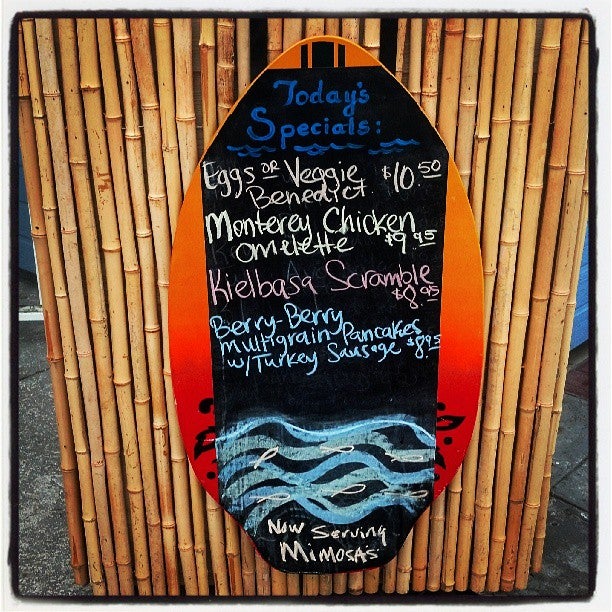 Today's
Specials:
Eggs or Veggie $10.50
Benedict
Monterey Chicken
omelette $9.95
Kielbasa Scramble
$8.95
Berry-Berry
Multigrain Pancakes
w/Turkey Sausage $8.95
Now Serving
Mimosa's